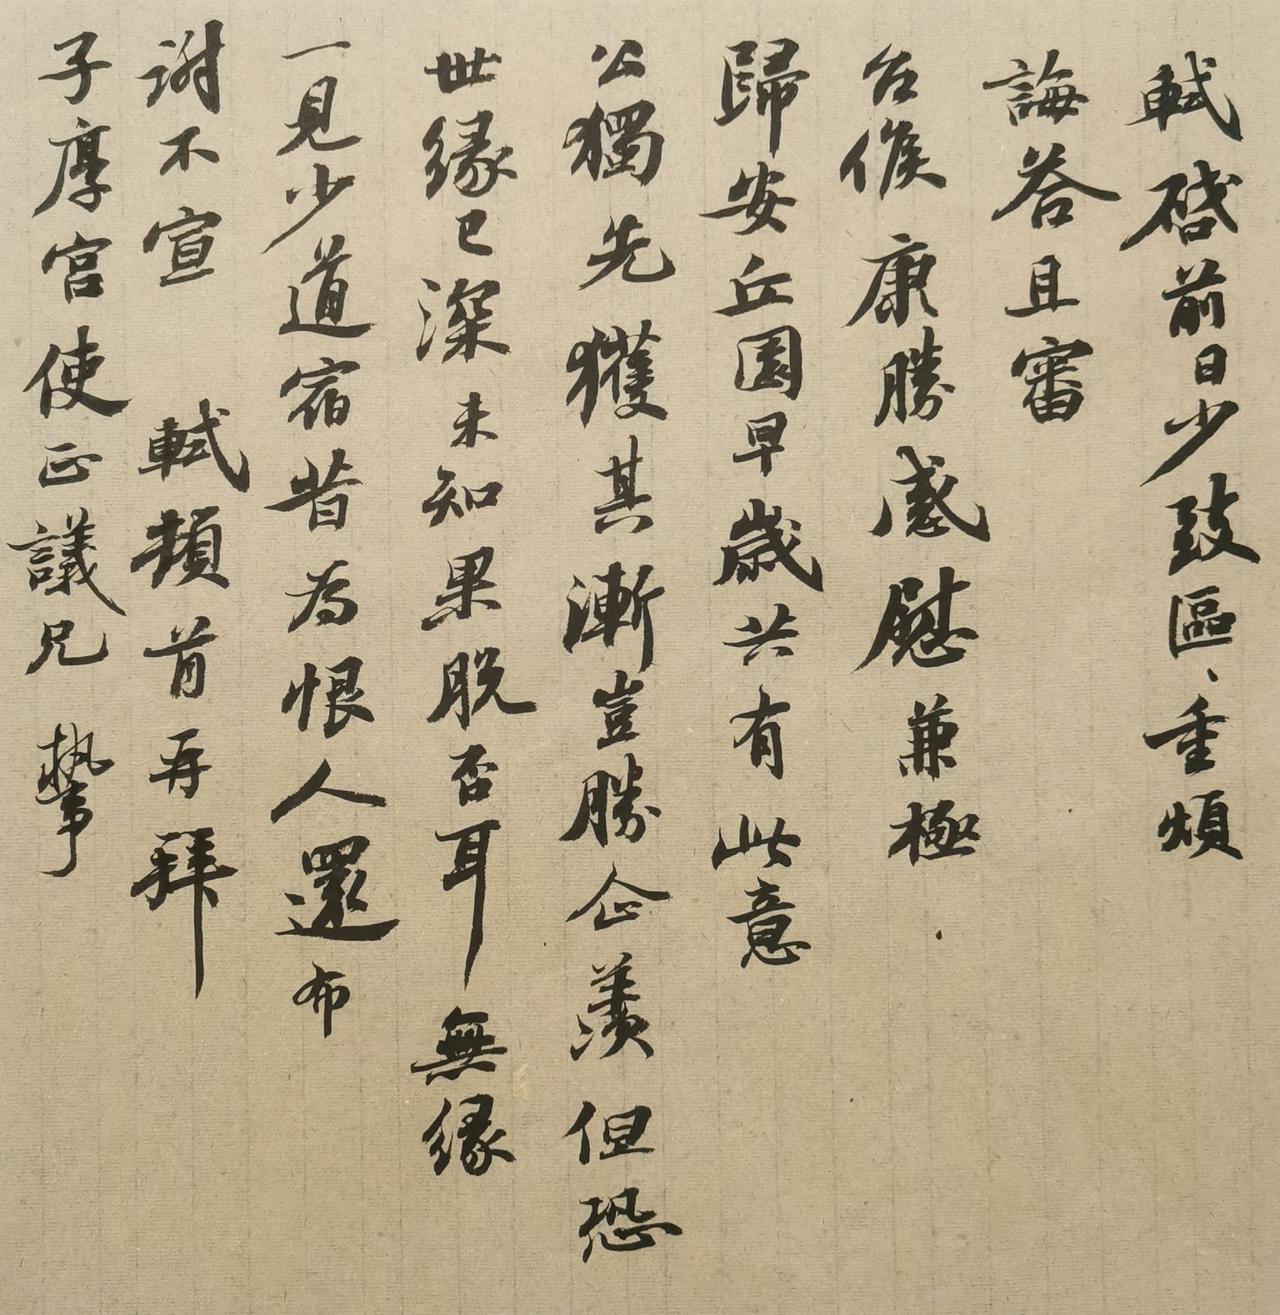 軾啓前日少致區、重煩
誨答且審
台候康勝感慰兼極
歸安丘園早歲共有此意
公獨先獲其漸豈勝企羨但恐
世緣已深未知果脫否耳無緣
一見少道宿昔為恨人還布
謝不宣 軾頓首再拜
子厚宮使正議兄 執事